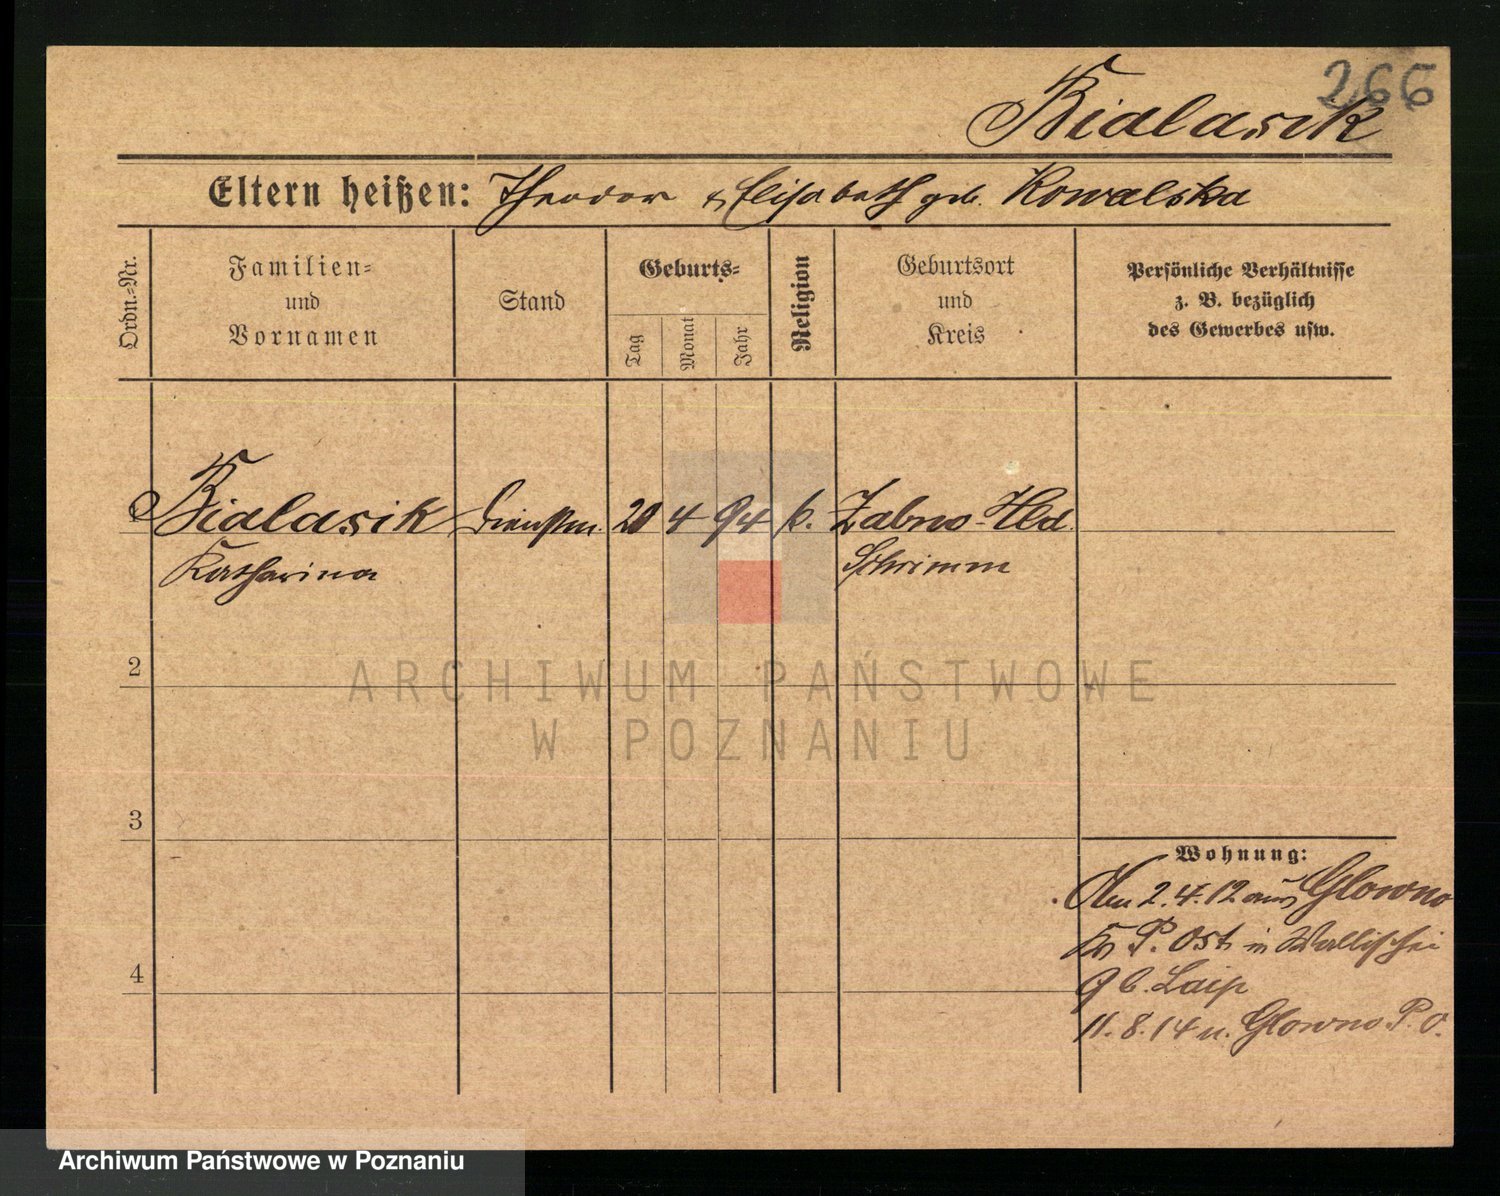 266
Bialasik
Eltern heißen: Theodor & Elisabeth geb. Kowalska
Ordn.-Nr.
Familien-
und
Vornamen
Stand
Geburts-
Tag
Monat
Jahr
Religion
Geburtsort
und
Kreis
Persönliche Verhältnisse
z. B. bezüglich
des Gewerbes usw.
Bialasik 20 4 94 k. Zabno-Hld
Katharina Schrimm
2
3
4
Wohnung:
Am 2.4.12 aus Glowno
Kr P. Ost in Wallischei
9 b.
11.8.14 n. Glowno P. O.
ARCHIWUM PAŃSTWOWE
W POZNANIU
Archiwum Państwowe w Poznaniu